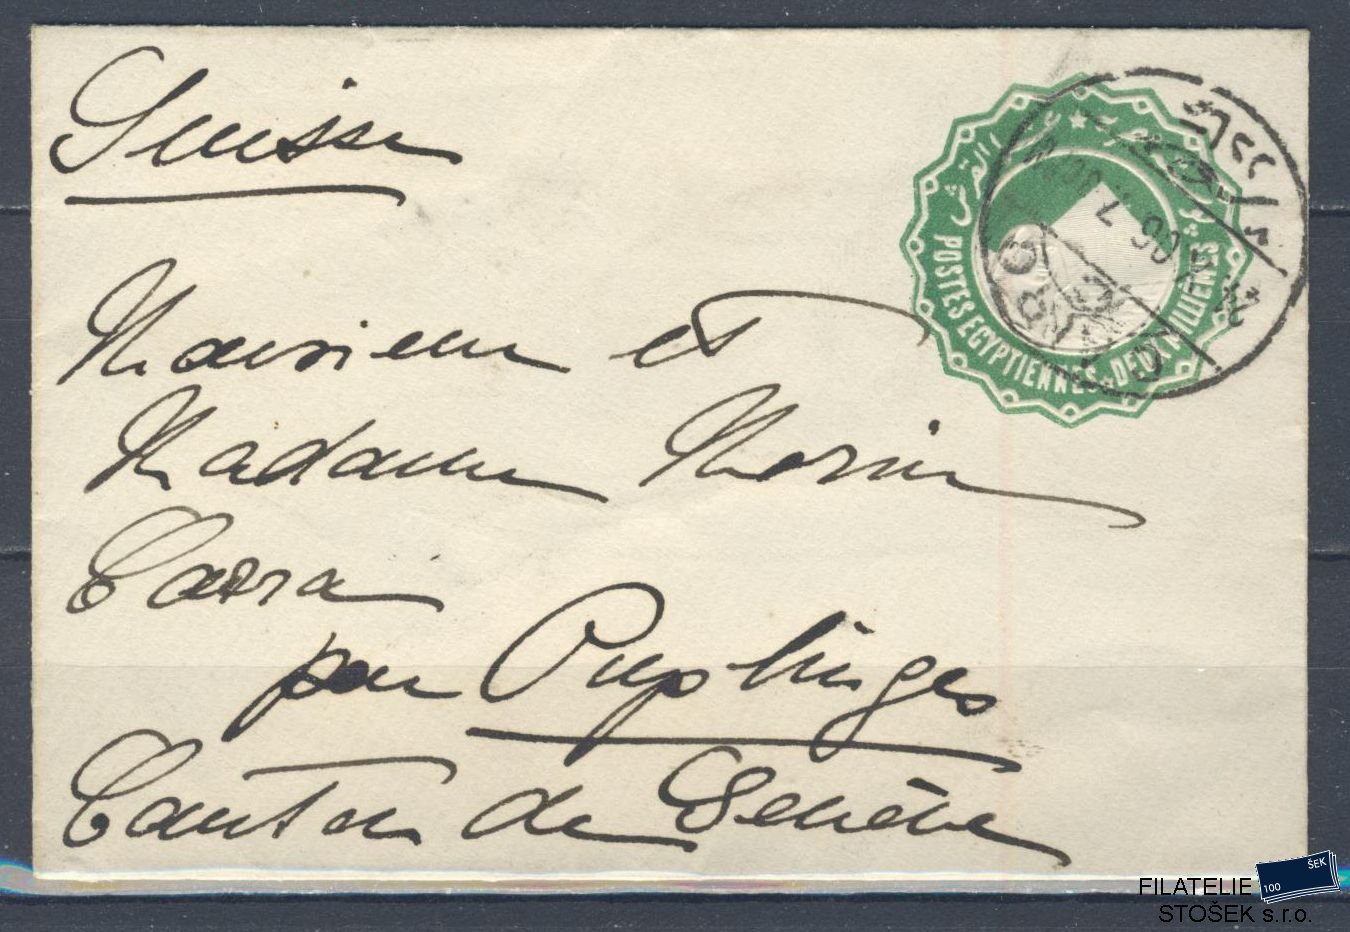 Suisse
Monsieur et
Madame Morin
Carra
par Puplinges
Canton de Genève
POSTES EGYPTIENNES. DEUX MILLIEMES
CAIRO
FILATELIE
STOŠEK s.r.o.
100
ŠEK